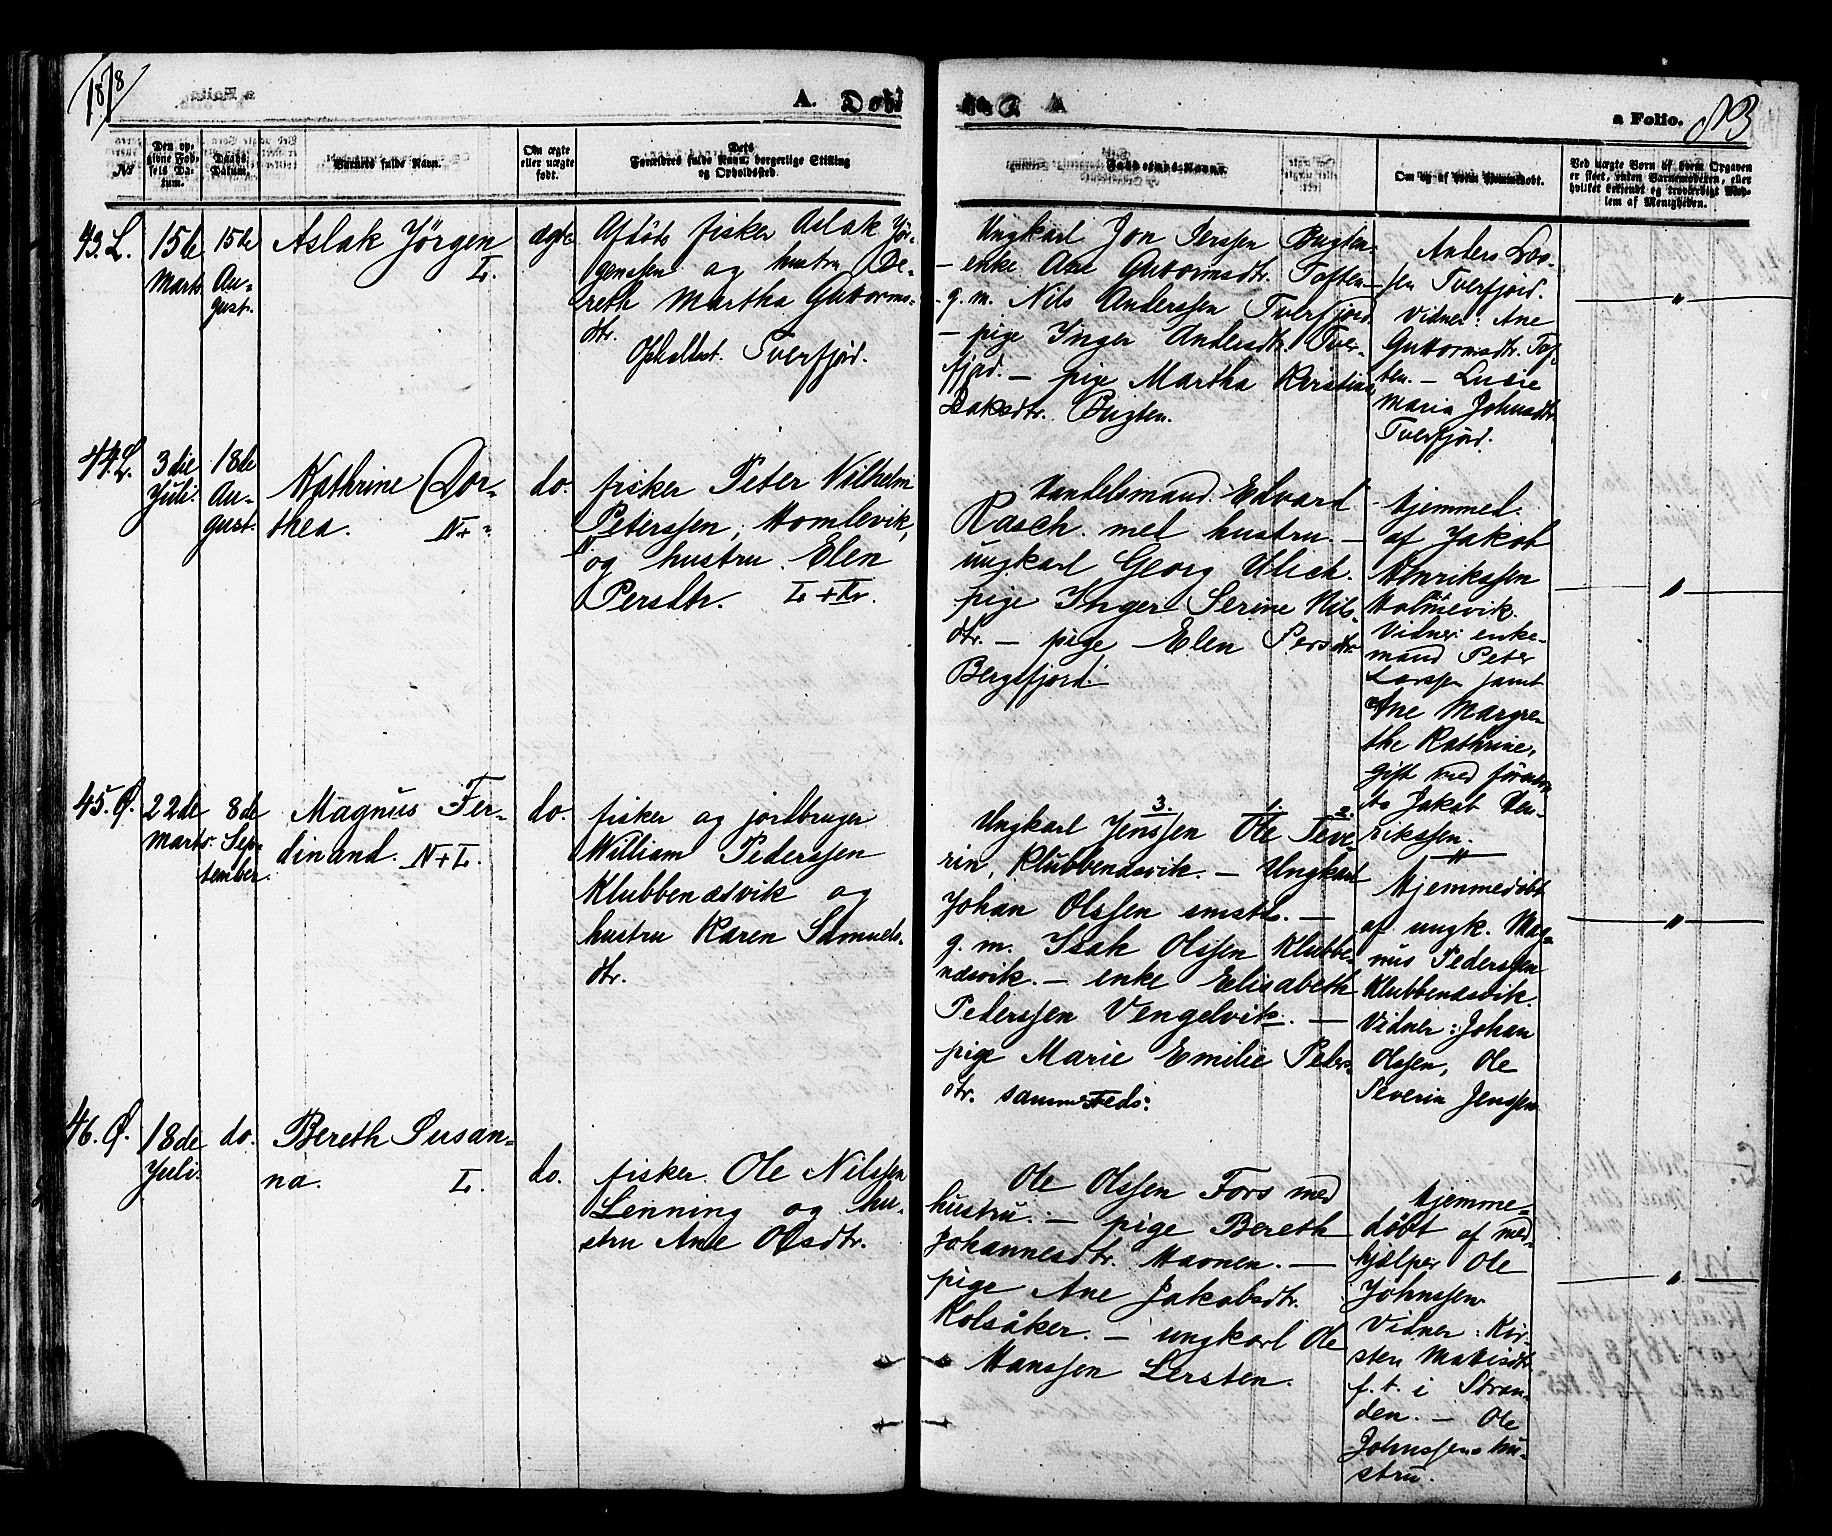 1878
A. Døbte
a Folio. 83
№
Den opgivne Fødsels Datum.
Daabs Datum.
Barnets fulde Navn.
Om ægte eller uægte født.
Dets Forældres fulde Navn, borgerlige Stilling og Opholdssted.
Faddernes Navne.
Om og af hvem hjemmedøbt.
Ved uægte Børn af hvem Opgaven er skeet, enten Barnemoderen, eller hvilket bekjendt og troværdigt Medlem af Menigheden.
43. L.
15de
Marts
15de
Au-
gust.
Aslak Jörgen
L.
ægte
Afdøde fisker Aslak Jör-
genssen og hustru Be-
reth Martha Guttorms-
dtr.
Opholdsst. Tverfjord.
Ungkarl Jon Perssen Bugten
- enke Ane Guttormsdtr. Toften -
g. m. Nils Anderssen Tverfjord
- pige Inger Andersdtr. Tver-
fjord. - pige Martha Kirstine
Isaksdtr. Bugten.
Anders Lar-
sen Tverfjord.
Vidner: Ane
Guttormsdtr. Tof-
ten. - Lusie
Maria Johnsdtr.
Tverfjord.
"
44. L.
3die
Juli.
18de
Au-
gust.
Kathrine Dor-
thea. N+"
do.
fisker Peter Vilhelm
Peterssen, Homlevik,
og hustru Elen
Persdtr. L+Kv.
Handelsmand Edvard
Rasch med hustru. -
ungkarl Georg Ulich.
pige Inger Serine Nils-
dtr. - pige Elen Persdtr.
Bergsfjord.
Hjemmed.
af Jakob
Henrikssen
Holmevik.
Vidner: enke-
mand Peter
Larssen samt
Ane Margre-
the Kathrine,
gift med foranm-
te Jakob Hen-
rikssen.
"
45. Ø.
22de
Marts.
8de
Sep-
tember.
Magnus Fer-
dinand. N+L.
do.
fisker og jordbruger
William Pederssen
Klubbenæsvik og
hustru Karen Samuels-
dtr.
3. 1. 2.
Ungkarl Jenssen Ole Seve-
rin, Klubbenæsvik. - Ungkarl
Johan Olssen smstd. -
g. m. Isak Olssen Klubbe-
næsvik. - enke Elisabeth
Pederssen Vengelvik. -
pige Marie Emilie Peders-
dtr. sammesteds.
Hjemmedöbt
af ungk. Mag-
nus Pederssen
Klubbenæsvik.
Vidner: Johan
Olssen, Ole
Severin Jenssen
"
46. Ø.
18de
Juli.
do.
Bereth Susan-
na. L.
do.
fisker Ole Nilssen
Lenning og hu-
stru Ane Olsdtr.
Ole Olssen Fors med
hustru. - pige Bereth
Johannesdtr. Havnen. -
pige Ane Jakobsdtr.
Kolsåker. - ungkarl Ole
Hanssen Lersten.
Hjemme-
döbt af med-
hjælper Ole
Johnssen.
Vidner: Kir-
sten Mathisdtr.
f. t. i Stran-
den. - Ole
Johnssens hu-
stru.
"